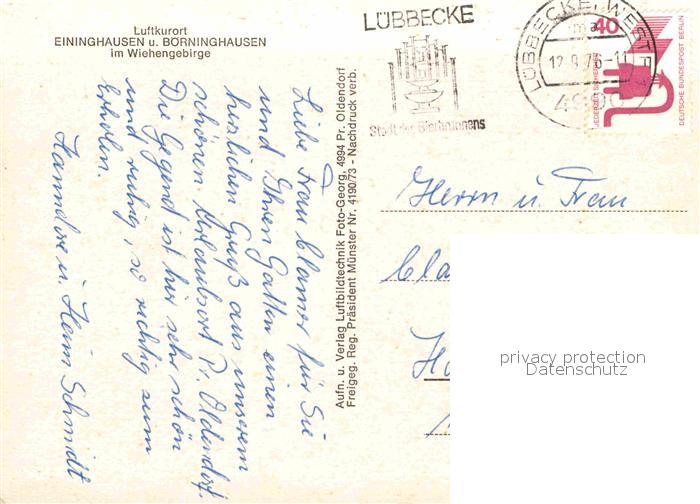 Luftkurort
EININGHAUSEN u. BÖRNINGHAUSEN
im Wiehengebirge
Liebe Frau Clamor für Sie
und Ihren Gatten einen
herzlichen Gruß aus unserem
schönen Urlaubsort Pr. Oldendorf.
Die Gegend ist hir sehr schön
und ruhig, so richtig zum
Erholen.
Hannelore u. Heinz Schmidt
Aufn. u. Verlag Luftbildtechnik Foto-Georg, 4994 Pr. Oldendorf
Freigeg. Reg. Präsident Münster Nr. 4190/73 - Nachdruck verb.
LÜBBECKE
Stadt des Bierbrunnens
LÜBBECKE, WESTF 1
ma
12.8.76-11
40
JEDERZEIT SICHERHEIT
DEUTSCHE BUNDESPOST BERLIN
Herrn u. Frau
Cla
privacy protection
Datenschutz